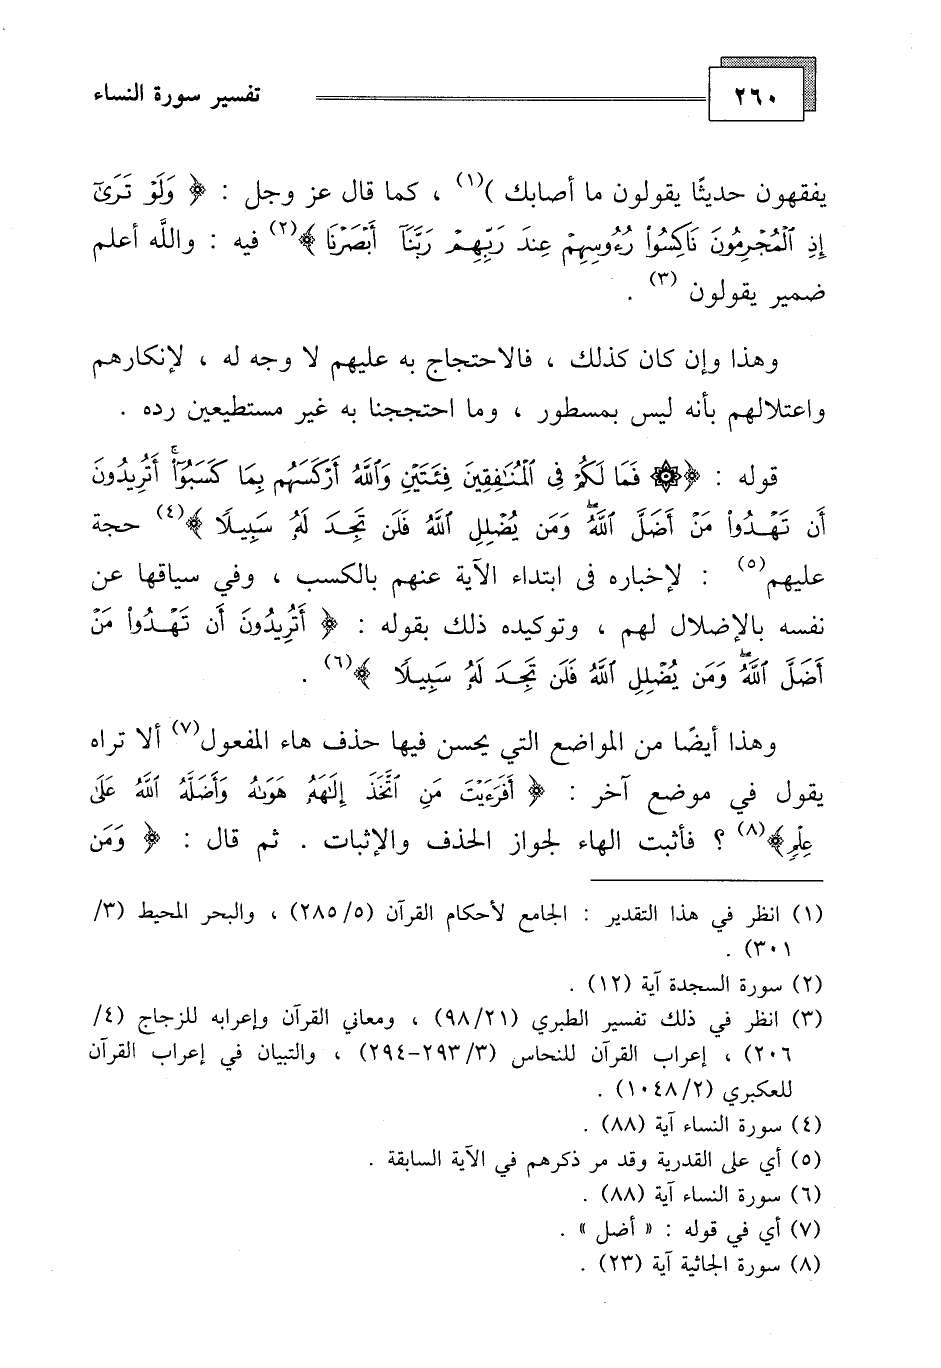 ٢٦٠ تفسير سورة النساء
يفقهون حديثًا يقولون ما أصابك )(١) ، كما قال عز وجل : ﴿ وَلَوْ تَرَىٰٓ
إِذِ ٱلْمُجْرِمُونَ نَاكِسُوا۟ رُءُوسِهِمْ عِندَ رَبِّهِمْ رَبَّنَآ أَبْصَرْنَا ﴾(٢) فيه : واللَّه أعلم
ضمير يقولون (٣) .
وهذا وإن كان كذلك ، فالاحتجاج به عليهم لا وجه له ، لإنكارهم
واعتلالهم بأنه ليس بمسطور ، وما احتججنا به غير مستطيعين رده .
قوله : ﴿۞ فَمَا لَكُمْ فِى ٱلْمُنَٰفِقِينَ فِئَتَيْنِ وَٱللَّهُ أَرْكَسَهُم بِمَا كَسَبُوٓا۟ۚ أَتُرِيدُونَ
أَن تَهْدُوا۟ مَنْ أَضَلَّ ٱللَّهُۖ وَمَن يُضْلِلِ ٱللَّهُ فَلَن تَجِدَ لَهُۥ سَبِيلًا ﴾(٤) حجة
عليهم(٥) : لإخباره فى ابتداء الآية عنهم بالكسب ، وفي سياقها عن
نفسه بالإضلال لهم ، وتوكيده ذلك بقوله : ﴿ أَتُرِيدُونَ أَن تَهْدُوا۟ مَنْ
أَضَلَّ ٱللَّهُۖ وَمَن يُضْلِلِ ٱللَّهُ فَلَن تَجِدَ لَهُۥ سَبِيلًا ﴾(٦) .
وهذا أيضًا من المواضع التي يحسن فيها حذف هاء المفعول(٧) ألا تراه
يقول في موضع آخر : ﴿ أَفَرَءَيْتَ مَنِ ٱتَّخَذَ إِلَٰهَهُۥ هَوَىٰهُ وَأَضَلَّهُ ٱللَّهُ عَلَىٰ
عِلْمٍ﴾(٨) ؟ فأثبت الهاء لجواز الحذف والإثبات . ثم قال : ﴿ وَمَن
(١) انظر في هذا التقدير : الجامع لأحكام القرآن (٢٨٥/٥) ، والبحر المحيط (٣/
٣٠١) .
(٢) سورة السجدة آية (١٢) .
(٣) انظر في ذلك تفسير الطبري (٩٨/٢١) ، ومعاني القرآن وإعرابه للزجاج (٤/
٢٠٦) ، إعراب القرآن للنحاس (٢٩٣/٣-٢٩٤) ، والتبيان في إعراب القرآن
للعكبري (١٠٤٨/٢) .
(٤) سورة النساء آية (٨٨) .
(٥) أي على القدرية وقد مر ذكرهم في الآية السابقة .
(٦) سورة النساء آية (٨٨) .
(٧) أي في قوله : « أضل » .
(٨) سورة الجاثية آية (٢٣) .